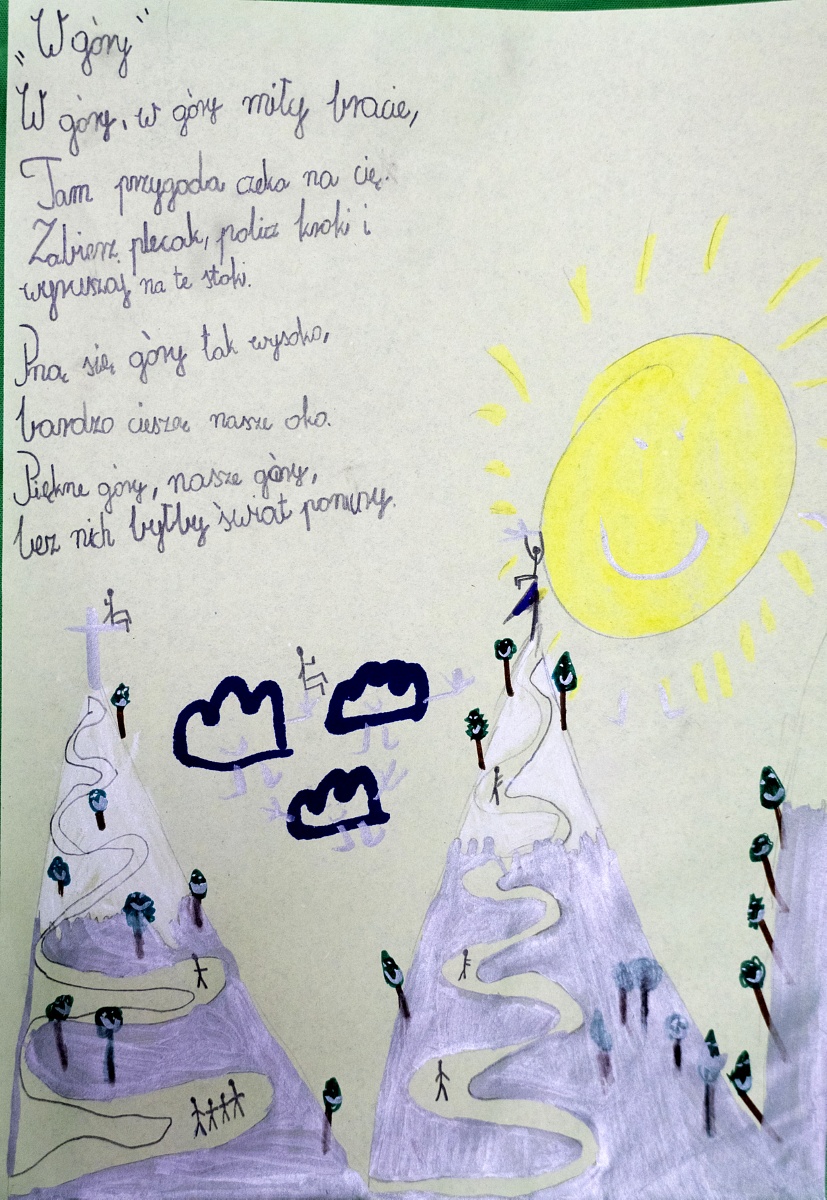 „W góry"
W góry, w góry miły bracie,
Tam przygoda czeka na cię.
Zabierz plecak, policz kroki i
wyruszaj na te stoki.
Pną się góry tak wysoko,
bardzo cieszą nasze oko.
Piękne góry, nasze góry,
bez nich byłby świat ponury.